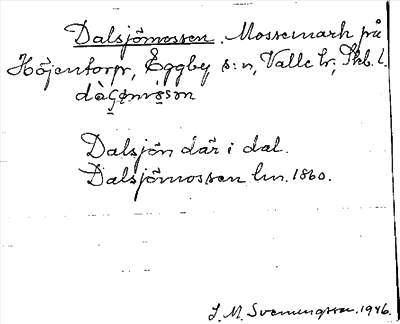 Dalsjömossen. Mossemark på
Höjentorp, Eggby s:n, Valle hr, Skb. l.
Dalsjön där i dal.
Dalsjömossen lm. 1860.
J. M. Svenungsson. 1946.